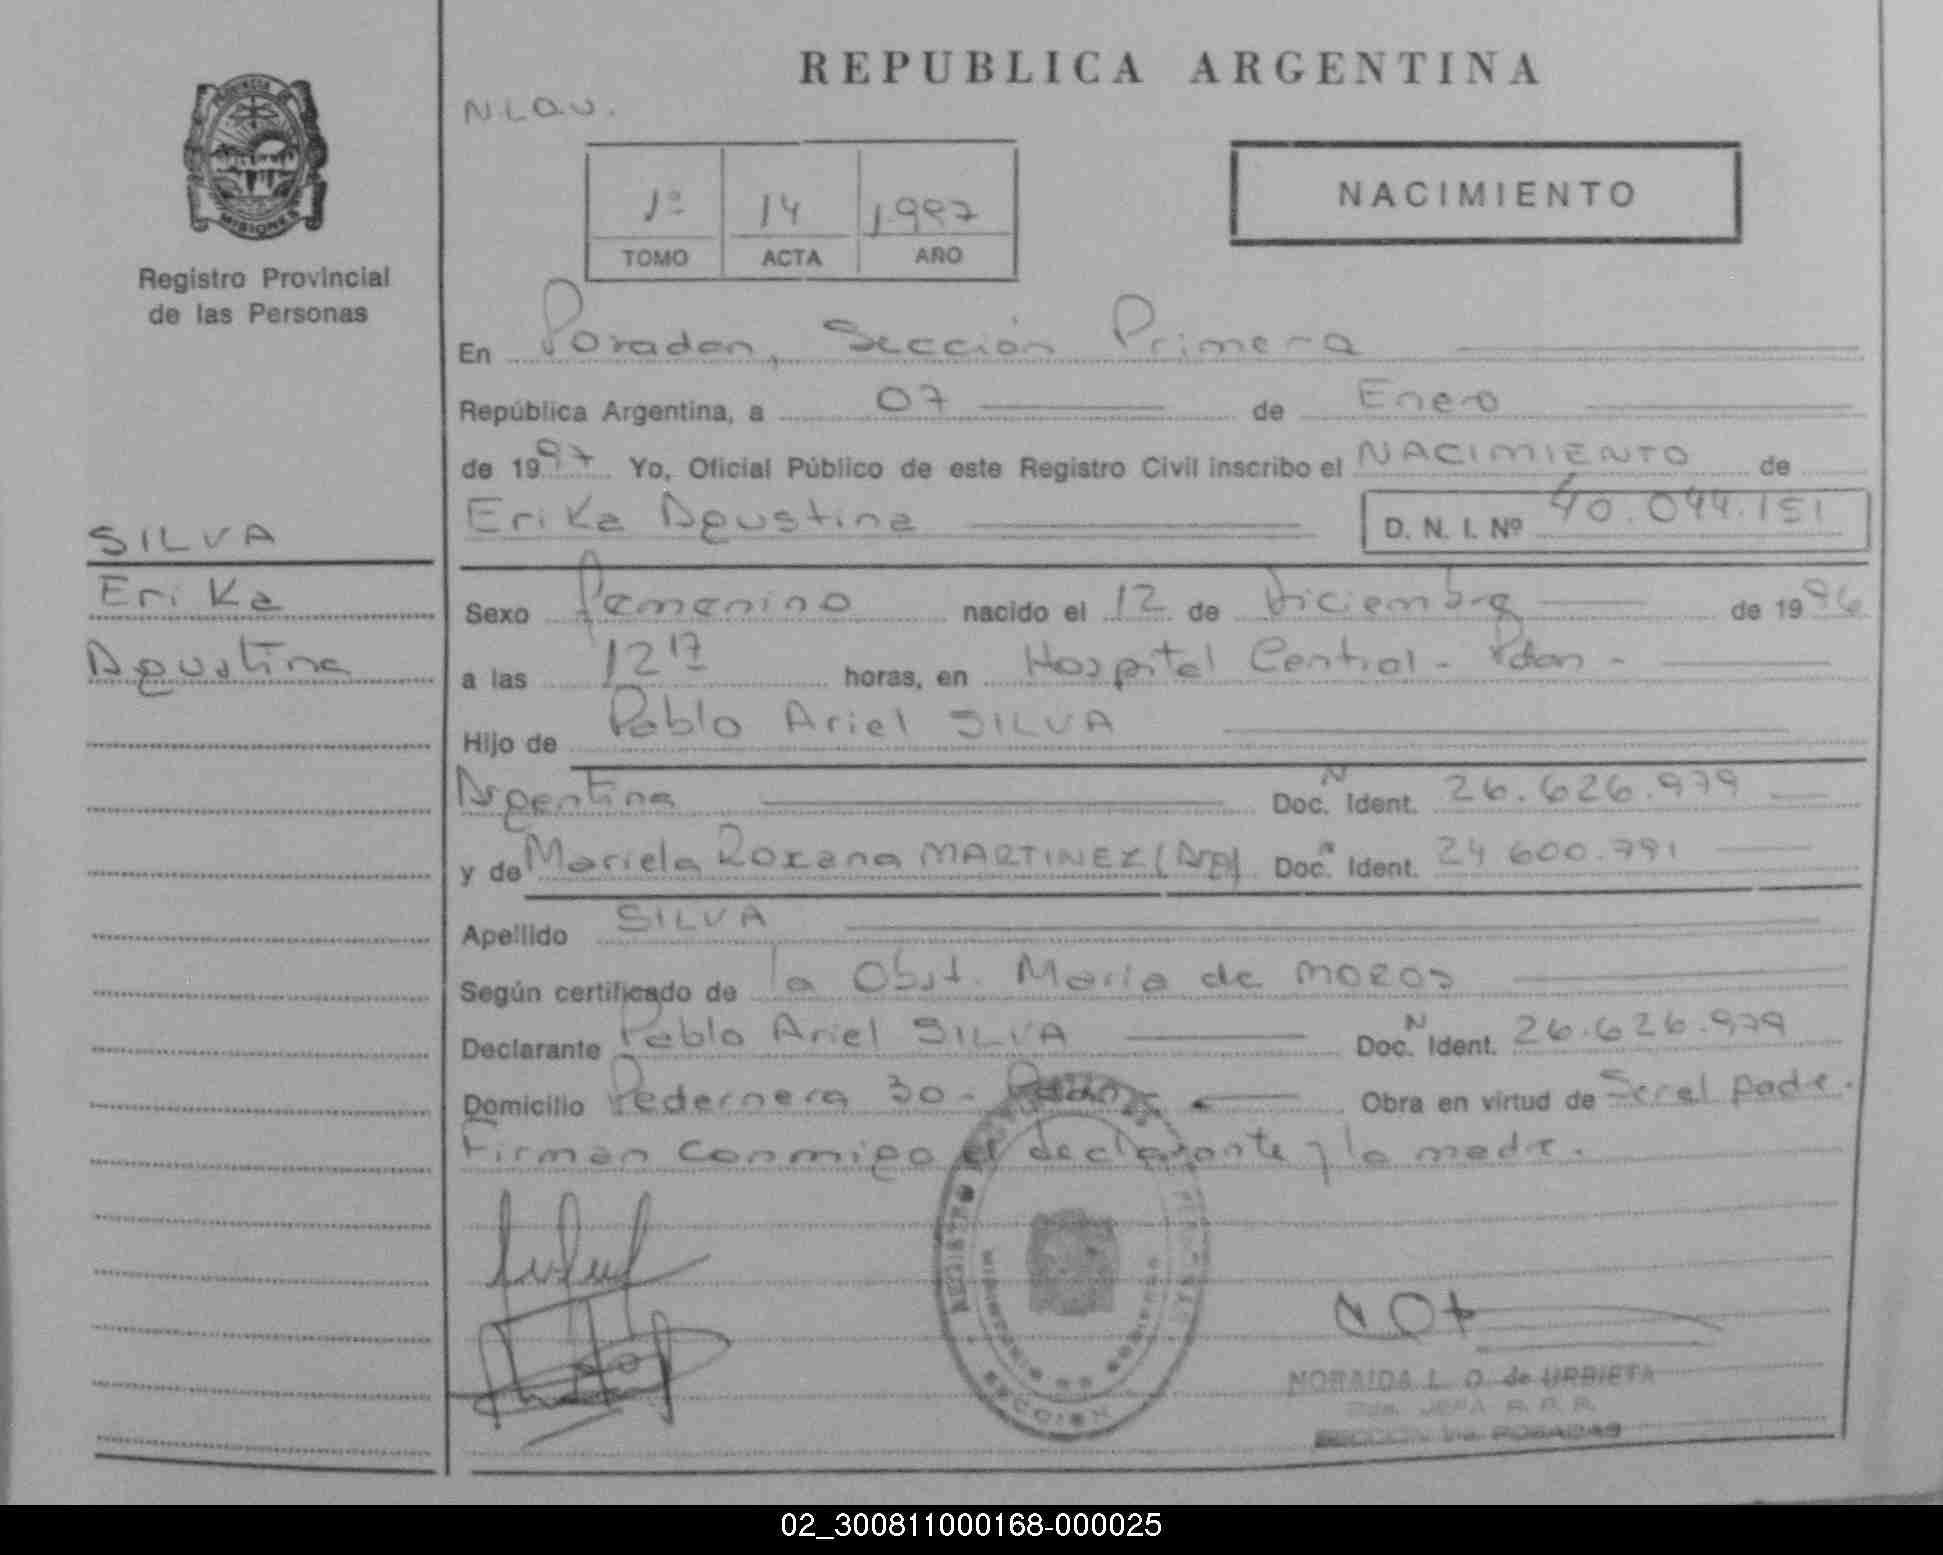 REPUBLICA ARGENTINA
N.L.O.U.
PROVINCIA DE
MISIONES
Registro Provincial
de las Personas
1º 14 1997
TOMO ACTA AÑO
NACIMIENTO
En Posadas, Sección Primera
República Argentina, a 07 de Enero
de 1997 Yo, Oficial Público de este Registro Civil inscribo el NACIMIENTO de
Erika Agustina D. N. I. Nº 40.044.151
SILVA
Erika
Agustina
Sexo femenino nacido el 12 de Diciembre de 1996
a las 12 17 horas, en Hospital Central - Pdas -
Hijo de Pablo Ariel SILVA
Argentina Doc. N Ident. 26.626.979
y de Mariela Roxana MARTINEZ (Arg) Doc. N Ident. 24 600.791
Apellido SILVA
Según certificado de la Obst. Maria de MOROS
Declarante Pablo Ariel SILVA Doc. N Ident. 26.626.979
Domicilio Pedernera 30 - Pdas Obra en virtud de Ser el padre.
Firman conmigo el declarante y la madre.
REGISTRO
MINISTERIO DE GOBIERNO
SECCION
NORAIDA L. O. de URBIETA
JEFA R. P. P.
SECCION 1ra. POSADAS
02_300811000168-000025